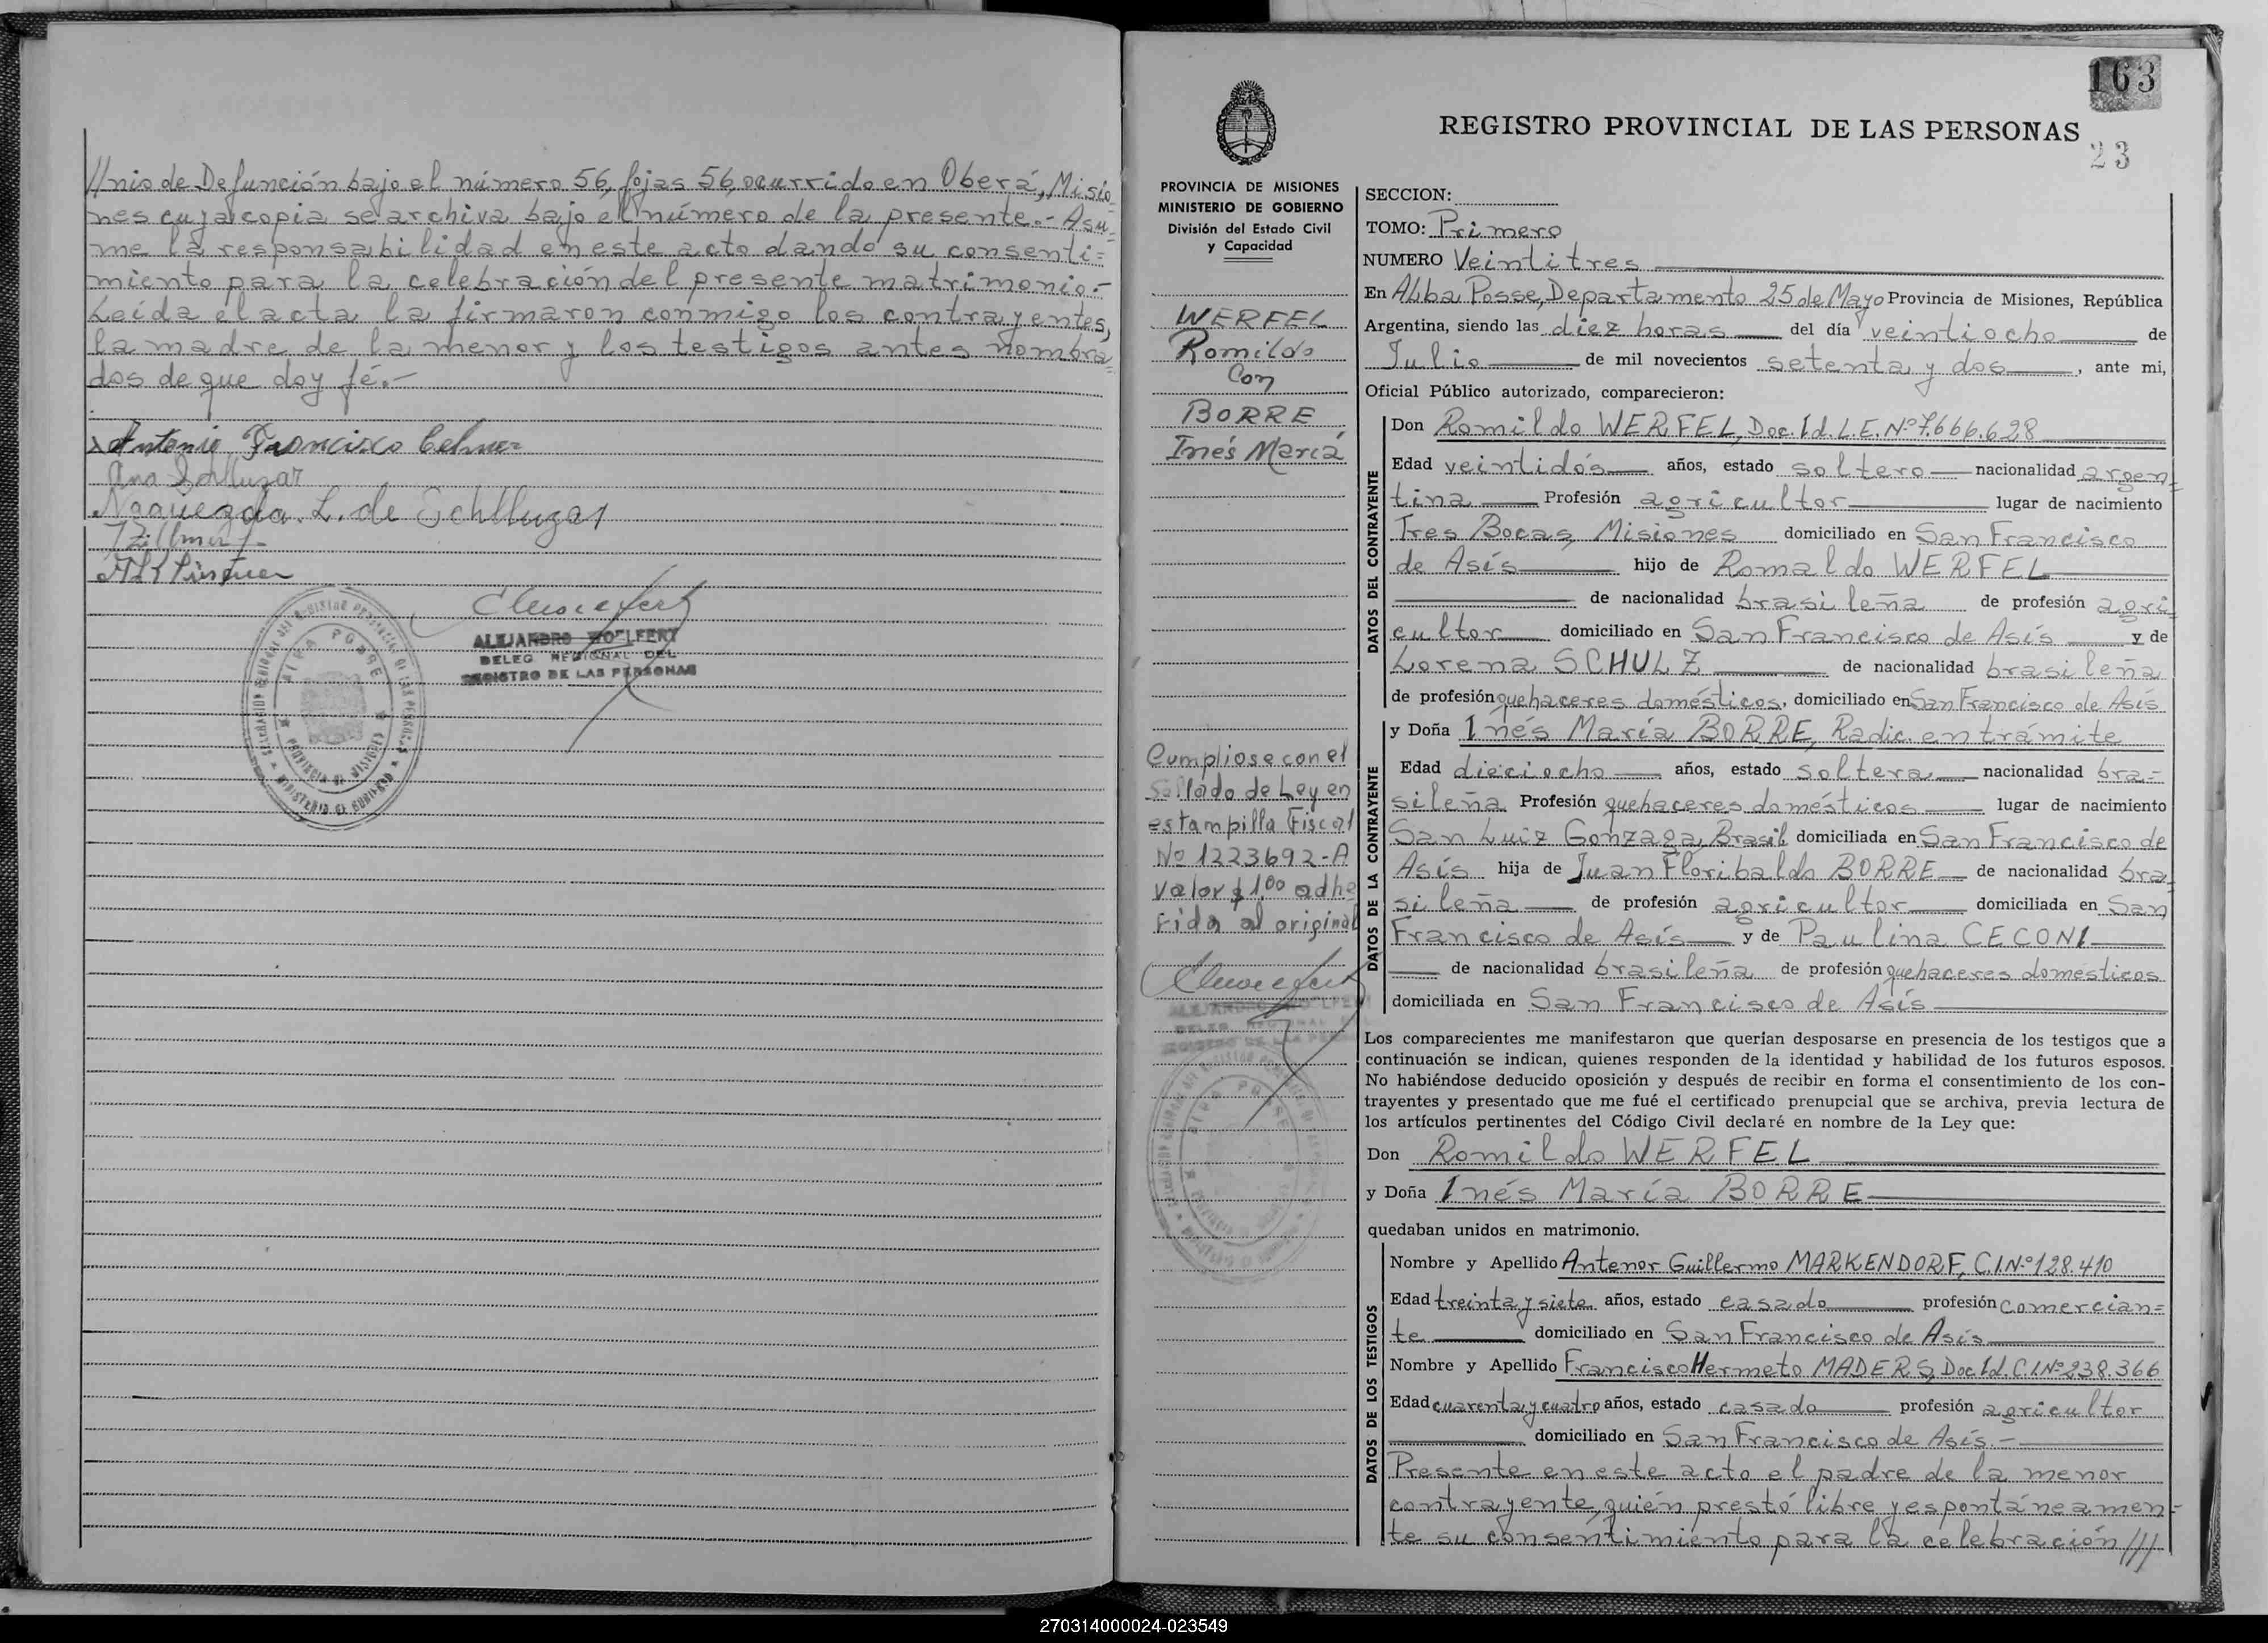 //nio de Defunción bajo el número 56, fojas 56, ocurrido en Oberá, Misio
nes cuya copia se archiva bajo el número de la presente.- Asu=
me la responsabilidad en este acto dando su consenti=
miento para la celebración del presente matrimonio.-
Leída el acta la firmaron conmigo los contrayentes,
la madre de la menor y los testigos antes nombra=
dos de que doy fé.-
Antonio Francisco
Ana
L. de
ALEJANDRO WOELFERT
DELEG REGIONAL DEL
REGISTRO DE LAS PERSONAS
ALBA POSSE
PROVINCIA DE MISIONES
MINISTERIO DE GOBIERNO
163
REGISTRO PROVINCIAL DE LAS PERSONAS
23
PROVINCIA DE MISIONES
MINISTERIO DE GOBIERNO
División del Estado Civil
y Capacidad
WERFEL
Romildo
Con
BORRE
Inés María
Cumpliose con el
Sellado de Ley en
estampilla Fiscal
Nº 1223692-A
valor $ 1,00 adhe
rida al original
SECCION:
TOMO: Primero
NUMERO Veintitres
En Alba Posse, Departamento 25 de Mayo Provincia de Misiones, República
Argentina, siendo las diez horas del día veintiocho de
Julio de mil novecientos setenta y dos, ante mi,
Oficial Público autorizado, comparecieron:
DATOS DEL CONTRAYENTE
Don Romildo WERFEL, Doc. Id. L.E. Nº 7.666.628
Edad veintidós años, estado soltero nacionalidad argen=
tina Profesión agricultor lugar de nacimiento
Tres Bocas, Misiones domiciliado en San Francisco
de Asís hijo de Romaldo WERFEL
de nacionalidad brasileña de profesión agri
cultor domiciliado en San Francisco de Asís y de
Lorena SCHULZ de nacionalidad brasileña
de profesión quehaceres domésticos, domiciliado en San Francisco de Asís
DATOS DE LA CONTRAYENTE
y Doña Inés María BORRE, Radic. en trámite
Edad dieciocho años, estado soltera nacionalidad bra=
sileña Profesión quehaceres domésticos lugar de nacimiento
San Luiz Gonzaga, Brasil domiciliada en San Francisco de
Asís hija de Juan Floribaldo BORRE de nacionalidad bra=
sileña de profesión agricultor domiciliada en San
Francisco de Asís y de Paulina CECONI
de nacionalidad brasileña de profesión quehaceres domésticos
domiciliada en San Francisco de Asís
Los comparecientes me manifestaron que querían desposarse en presencia de los testigos que a
continuación se indican, quienes responden de la identidad y habilidad de los futuros esposos.
No habiéndose deducido oposición y después de recibir en forma el consentimiento de los con-
trayentes y presentado que me fué el certificado prenupcial que se archiva, previa lectura de
los artículos pertinentes del Código Civil declaré en nombre de la Ley que:
Don Romildo WERFEL
y Doña Inés María BORRE
quedaban unidos en matrimonio.
DATOS DE LOS TESTIGOS
Nombre y Apellido Antenor Guillermo MARKENDORF, C.I.Nº 128.410
Edad treinta y siete años, estado casado profesión comercian=
te domiciliado en San Francisco de Asís
Nombre y Apellido Francisco Hermeto MADERS, Doc. Id. C.I.Nº 238.366
Edad cuarenta y cuatro años, estado casado profesión agricultor
domiciliado en San Francisco de Asís.-
Presente en este acto el padre de la menor
contrayente, quién prestó libre y espontáneamen=
te su consentimiento para la celebración///
270314000024-023549